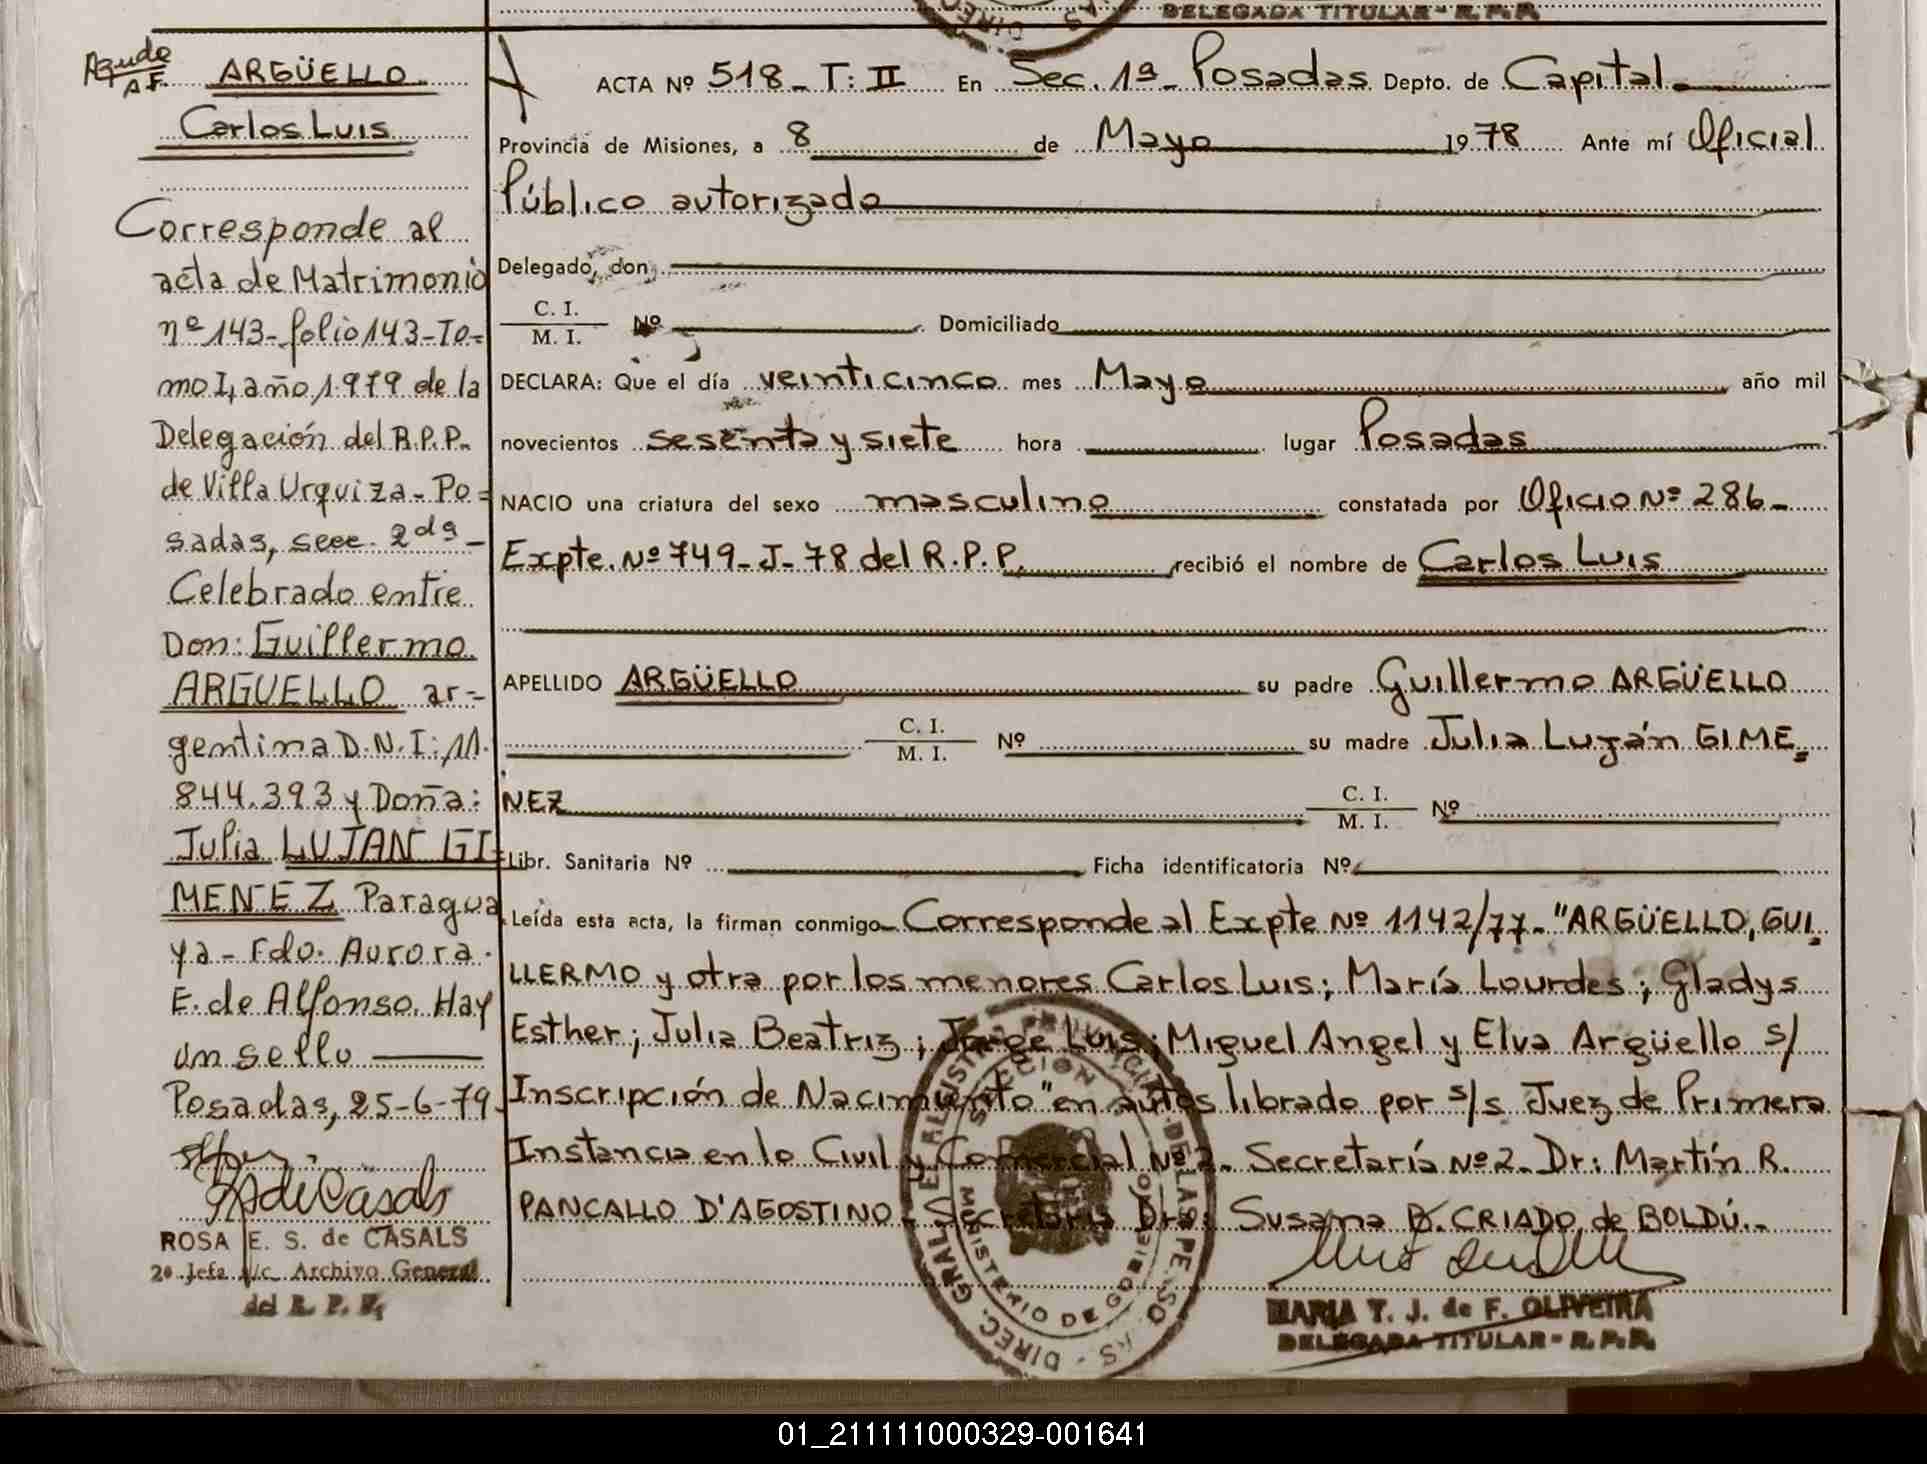 DELEGADA TITULAR - R. P. P.
Agude
A.F.
ARGÜELLO
Carlos Luis
Corresponde al
acta de Matrimonio
nº 143-folio 143-To=
mo I, año 1.979 de la
Delegación del R.P.P.
de Villa Urquiza - Po=
sadas, secc. 2da -
Celebrado entre
Don: Guillermo
ARGUELLO ar-
gentina D.N.I: 11.
844.393 y Doña:
Julia LUJAN GI=
MENEZ Paragua
ya - Fdo. Aurora
E. de Alfonso. Hay
un sello
Posadas, 25-6-79
ROSA E. S. de CASALS
2º Jefa a/c. Archivo General
del R. P. P.
ACTA Nº 518 - T: II En Sec. 1ª - Posadas Depto. de Capital
Provincia de Misiones, a 8 de Mayo 1978 Ante mí Oficial
Público autorizado
Delegado, don
C. I.
M. I. Nº Domiciliado
DECLARA: Que el día veinticinco mes Mayo año mil
novecientos sesenta y siete hora lugar Posadas
NACIO una criatura del sexo masculino constatada por Oficio Nº 286 -
Expte. Nº 749 - J - 78 del R. P. P. recibió el nombre de Carlos Luis
APELLIDO ARGÜELLO su padre Guillermo ARGÜELLO
C. I.
M. I. Nº su madre Julia Luján GIME=
NEZ C. I.
M. I. Nº
Libr. Sanitaria Nº Ficha identificatoria Nº
Leída esta acta, la firman conmigo Corresponde al Expte Nº 1142/77 - "ARGÜELLO, GUI
LLERMO y otra por los menores Carlos Luis; María Lourdes; Gladys
Esther; Julia Beatriz; Jorge Luis; Miguel Angel y Elva Argüello s/
Inscripción de Nacimiento" en autos librado por s/s Juez de Primera
Instancia en lo Civil y Comercial Nº 2 - Secretaría Nº 2 - Dr: Martín R.
PANCALLO D'AGOSTINO - Secretaria Dra: Susana B. CRIADO de BOLDÚ.-
MARIA T. J. de F. OLIVEIRA
DELEGADA TITULAR - R. P. P.
MINISTERIO DE GOBIERNO
01_211111000329-001641